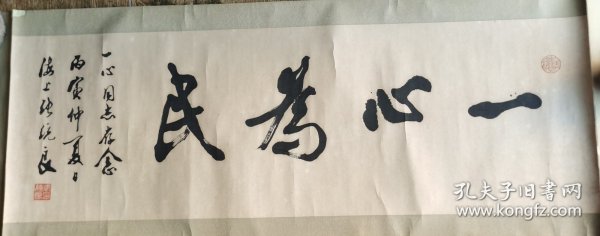 一心為民
一心同志存念
丙寅仲夏日
海上張統良
孔夫子旧书网
www.kongfz.com